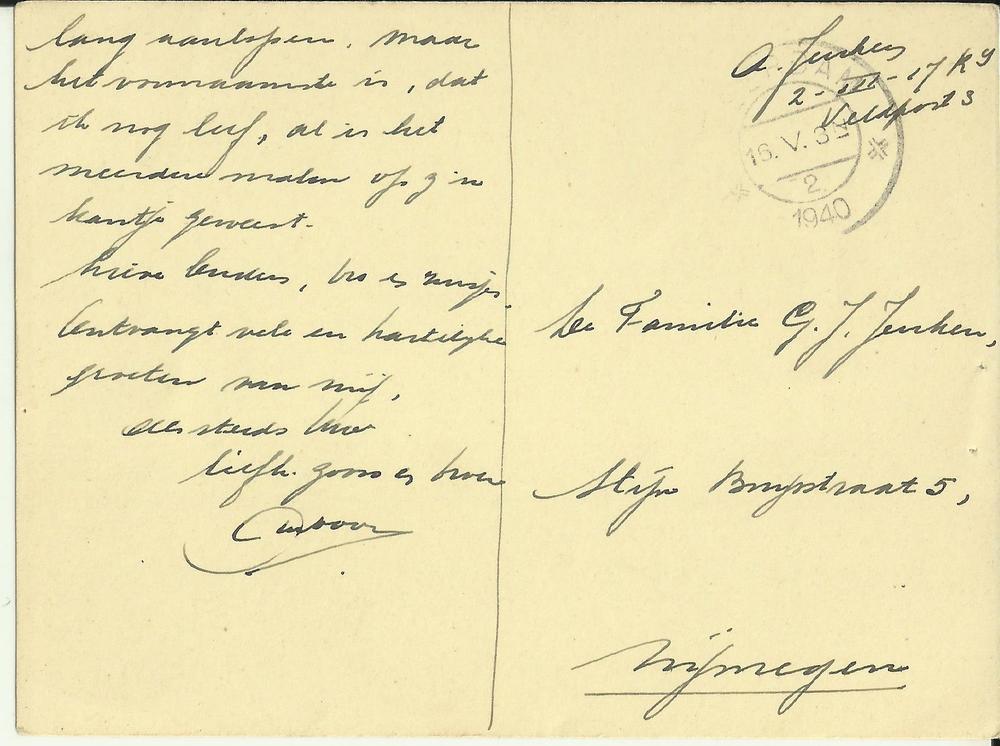 lang aanlopen. maar
het voornaamste is, dat
ik nog leef, al is het
meerdere malen op z'n
kantje geweest.
lieve ouders, bro en zusjes.
Ontvangt vele en hartelijke
groeten van mij,
als steeds Uw
liefh. zoon en broer
A. Jenken
2-III-17 R.I
Veldpost 3
DAM
16. V. 3
2
1940
De Familie G. J. Jenken,
Stijn Buysstraat 5,
Nijmegen